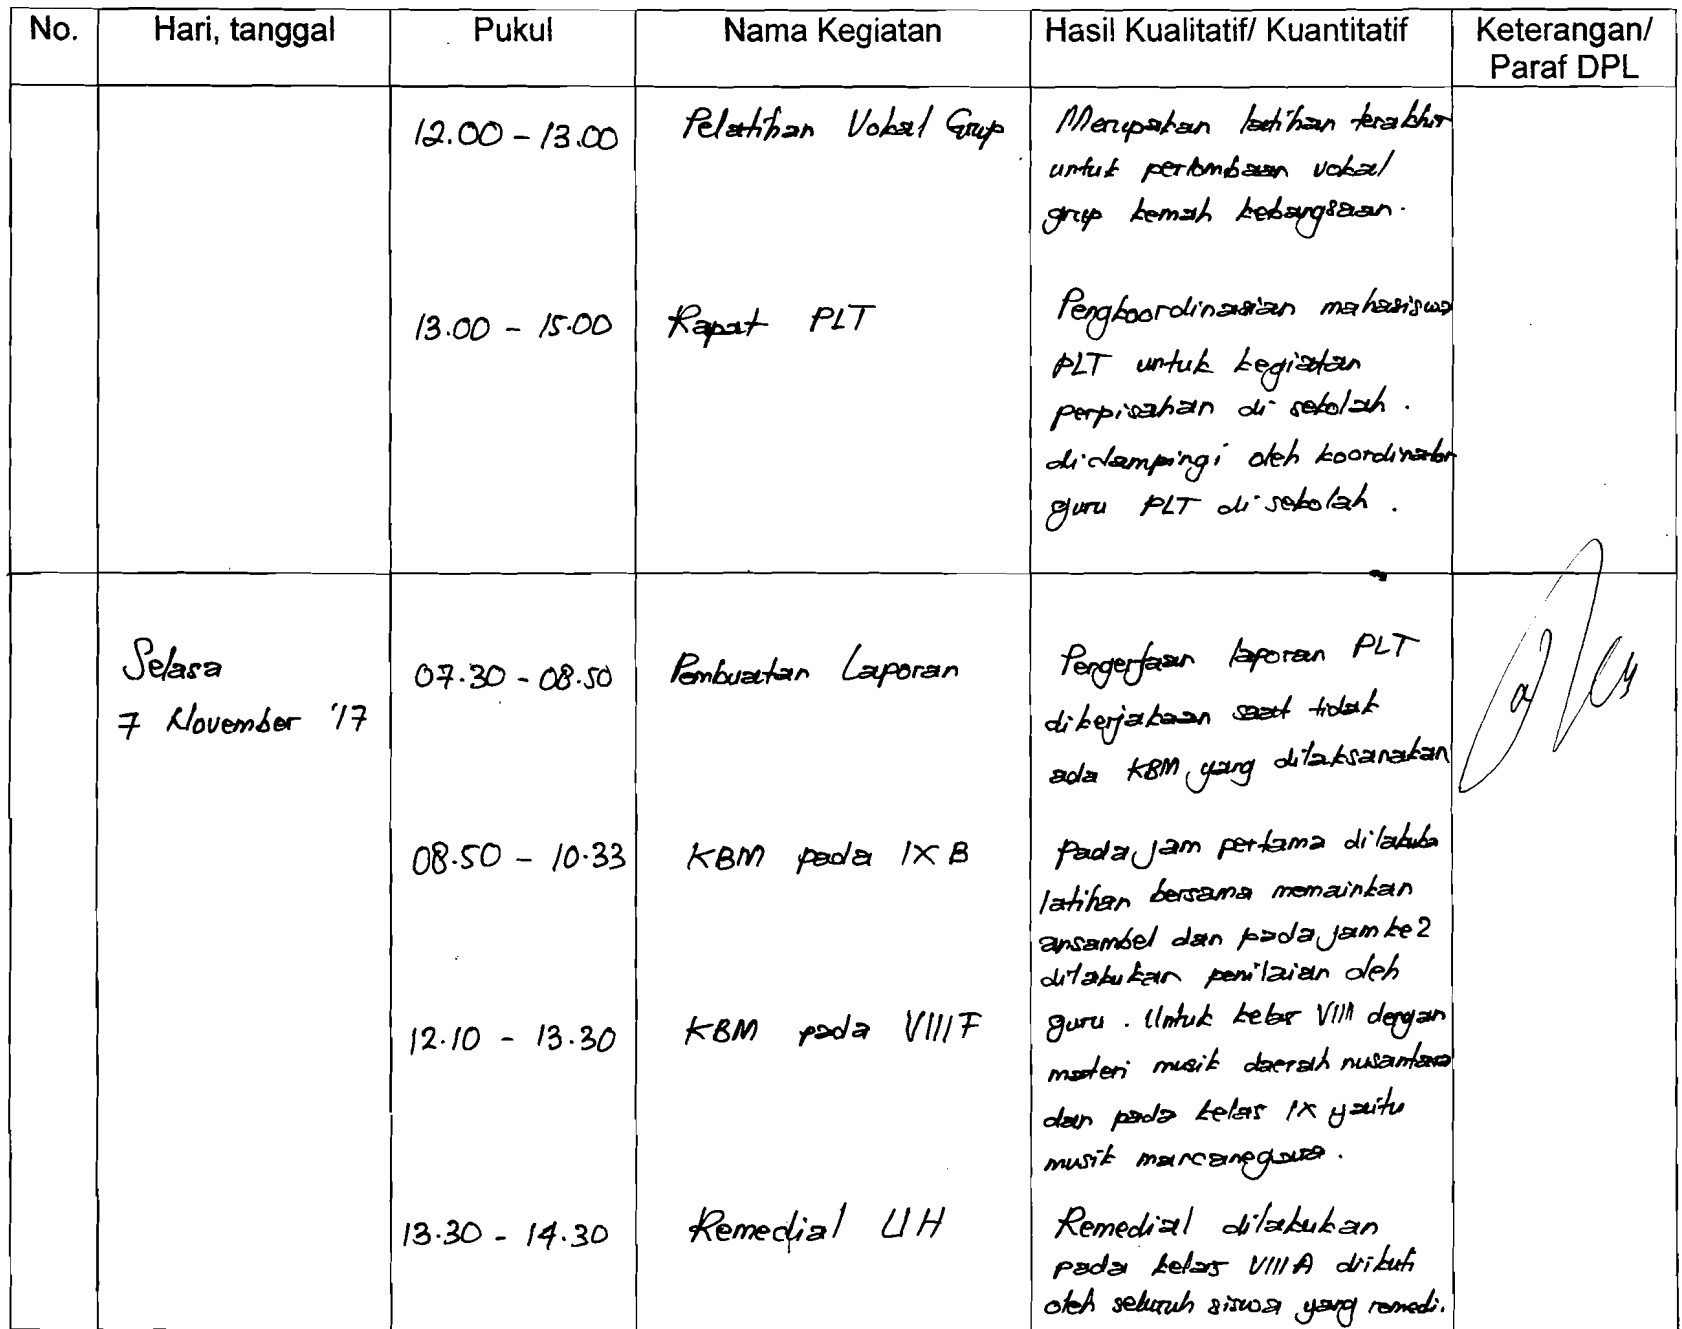 No. Hari, tanggal Pukul Nama Kegiatan Hasil Kualitatif/ Kuantitatif Keterangan/
Paraf DPL
12.00 - 13.00 Pelatihan Vokal Grup Merupakan latihan terakhir
untuk perlombaan vokal
grup kemah kebangsaan.
13.00 - 15.00 Rapat PLT Pengkoordinasian mahasiswa
PLT untuk kegiatan
perpisahan di sekolah.
didampingi oleh koordinator
guru PLT di sekolah.
Selasa 07.30 - 08.50 Pembuatan Laporan Pengerjaan laporan PLT
7 November '17 dikerjakaan saat tidak
ada KBM yang dilaksanakan
08.50 - 10.33 KBM pada IX B Pada jam pertama dilakuka
latihan bersama memainkan
ansambel dan pada jam ke 2
dilakukan penilaian oleh
12.10 - 13.30 KBM pada VIII F guru. Untuk kelas VIII dengan
materi musik daerah nusantara
dan pada kelas IX yaitu
musik mancanegara.
13.30 - 14.30 Remedial UH Remedial dilakukan
pada kelas VIII A diikuti
oleh seluruh siswa yang remedi.